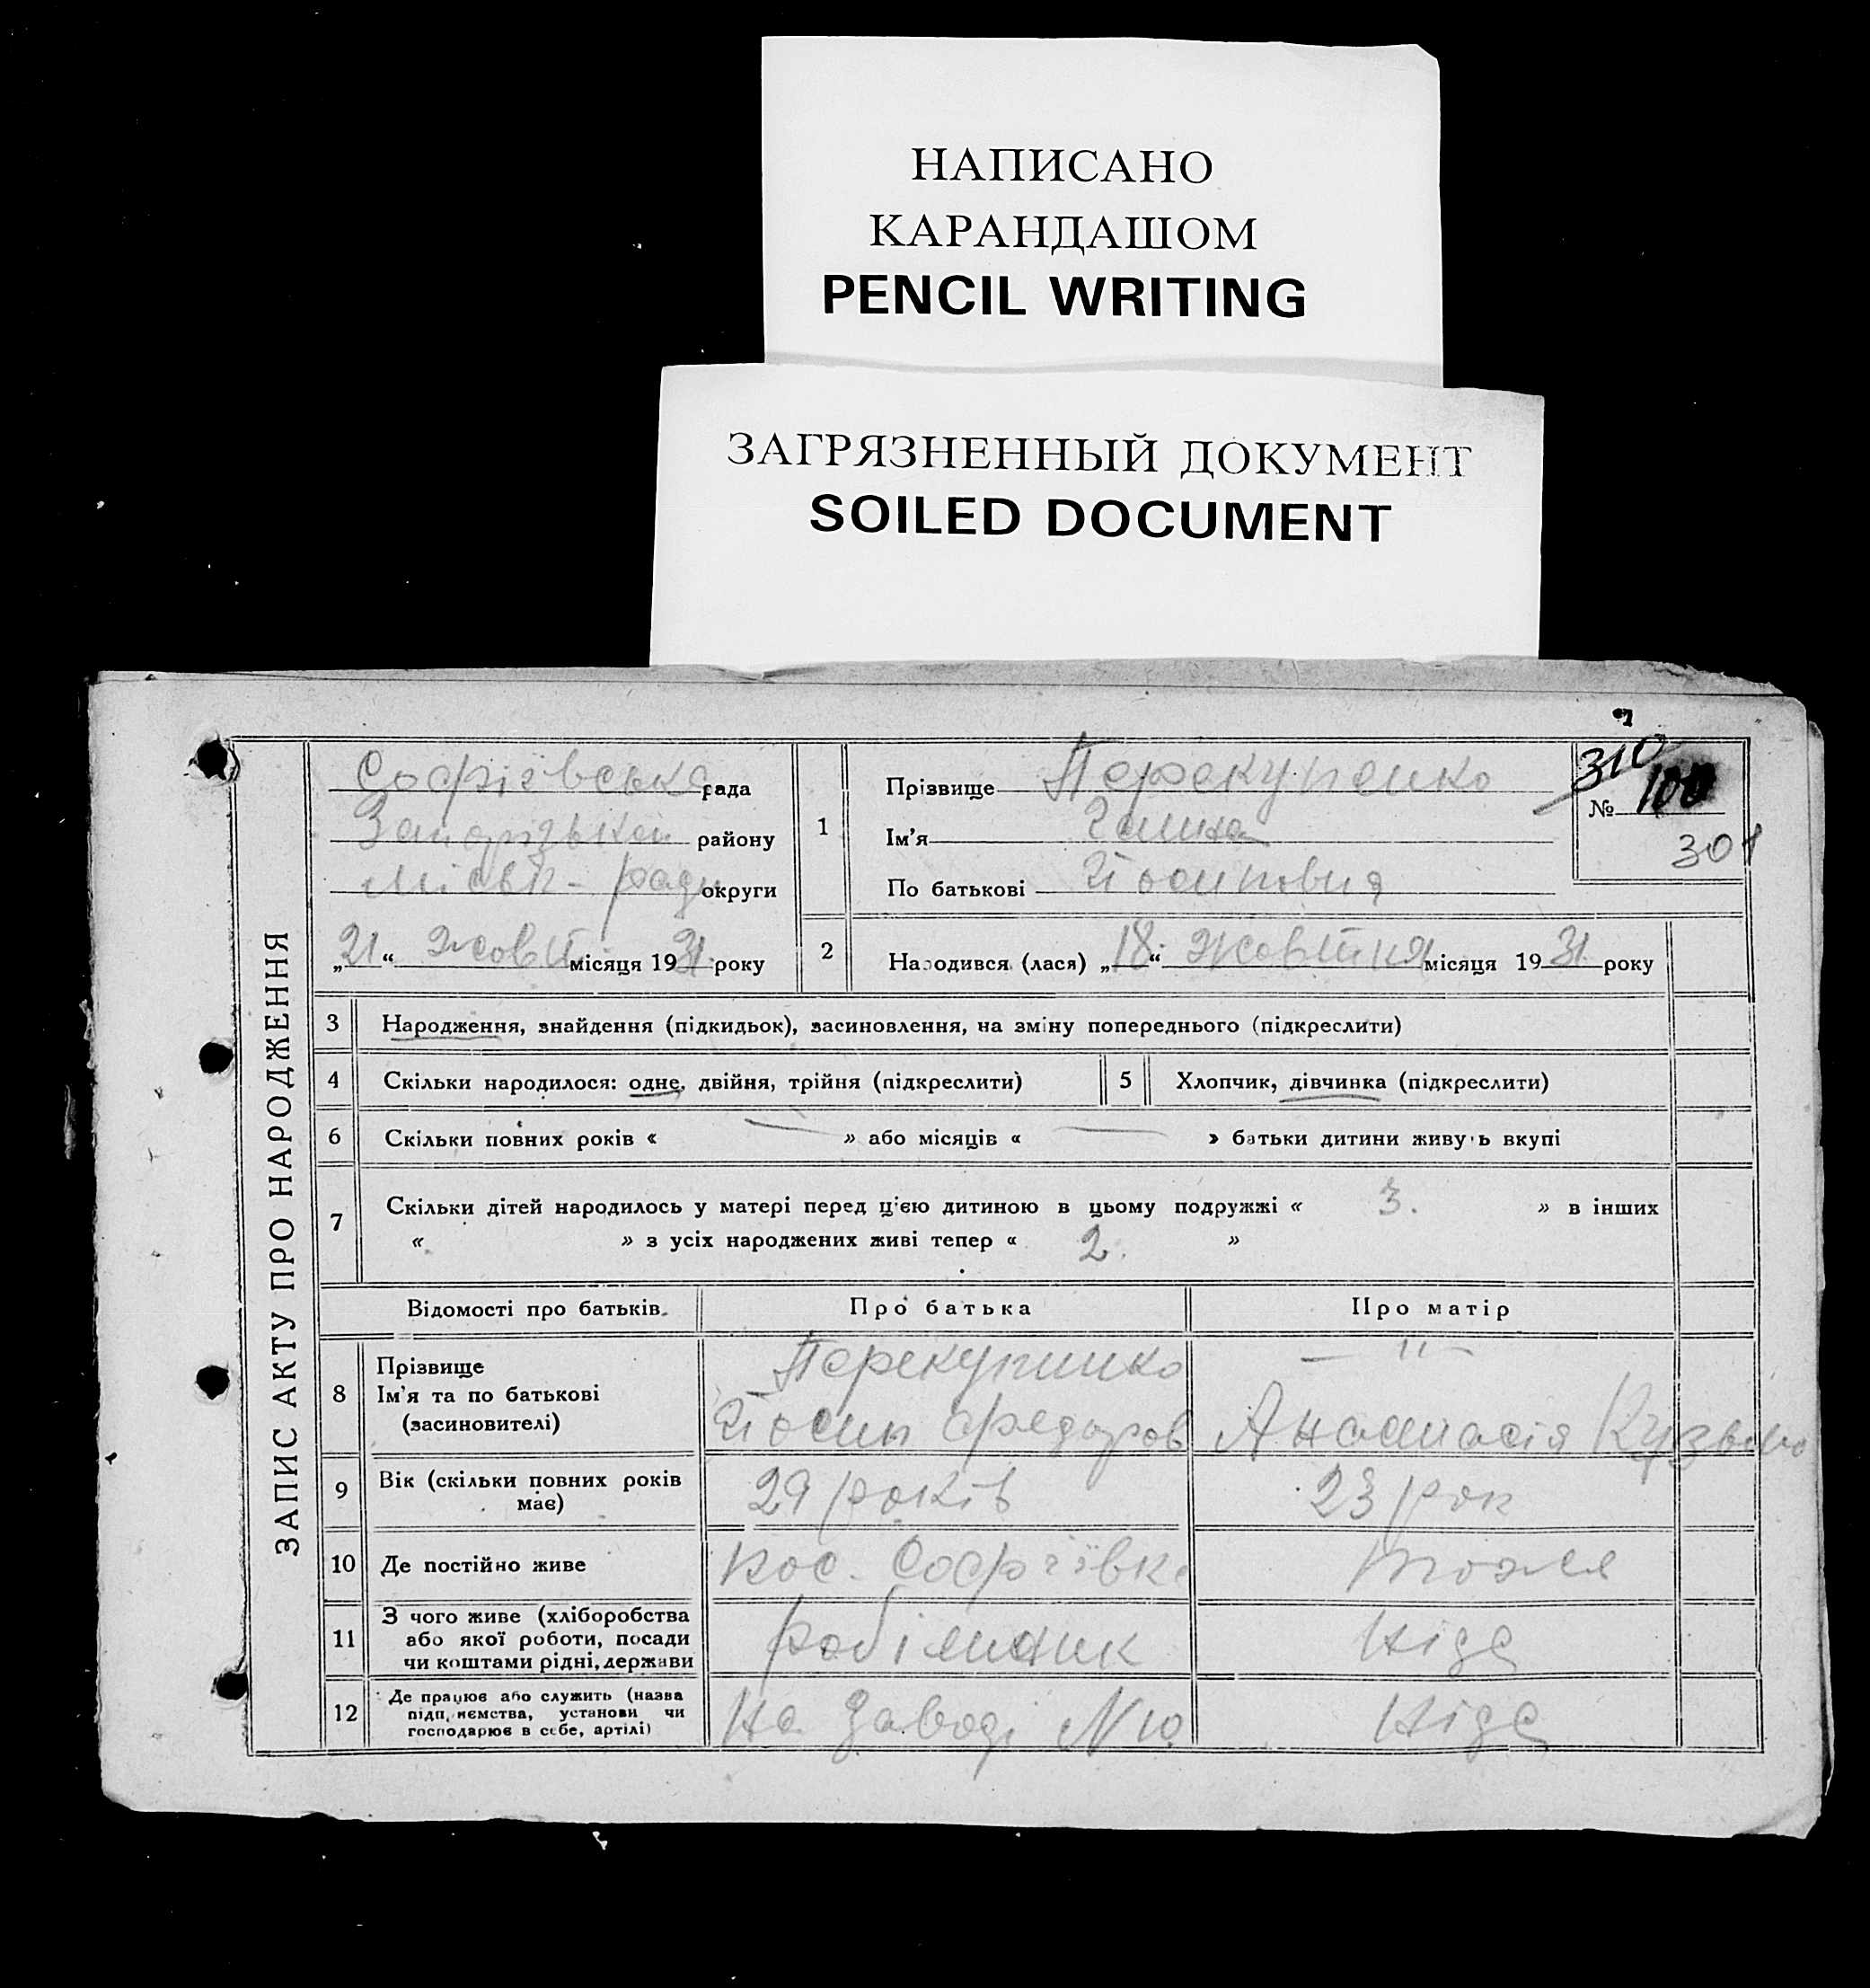 НАПИСАНО
КАРАНДАШОМ
PENCIL WRITING
ЗАГРЯЗНЕННЫЙ ДОКУМЕНТ
SOILED DOCUMENT
ЗАПИС АКТУ ПРО НАРОДЖЕННЯ
Софіївська рада
Запорізької району
Міськ-ради округи
„21“ Жовт. місяця 1931 року
1
Прізвище Перекупенко
Ім'я Галина
По батькові Йосиповна
310
№ 100
301
2
Народився (лася) „18“ Жовтня місяця 1931. року
3 Народження, знайдення (підкидьок), засиновлення, на зміну попереднього (підкреслити)
4 Скільки народилося: одне, двійня, трійня (підкреслити) 5 Хлопчик, дівчинка (підкреслити)
6 Скільки повних років « — » або місяців « — » батьки дитини живуть вкупі
7 Скільки дітей народилось у матері перед цією дитиною в цьому подружжі « 3. » в інших
« » з усіх народжених живі тепер « 2. »
Відомості про батьків. Про батька Про матір
8 Прізвище
Ім'я та по батькові
(засиновителі)
Перекупинко
Йосип Федоров
— " —
Анастасія
9 Вік (скільки повних років
має)
29 років
23 рок
10 Де постійно живе
кос. Софіївка
тожея
11 З чого живе (хліборобства
або якої роботи, посади
чи коштами рідні, держави
робітник
Нідє
12 Де працює або служить (назва
підприємства, установи чи
господарює в себе, артілі)
На Заводі N 10
Нідє